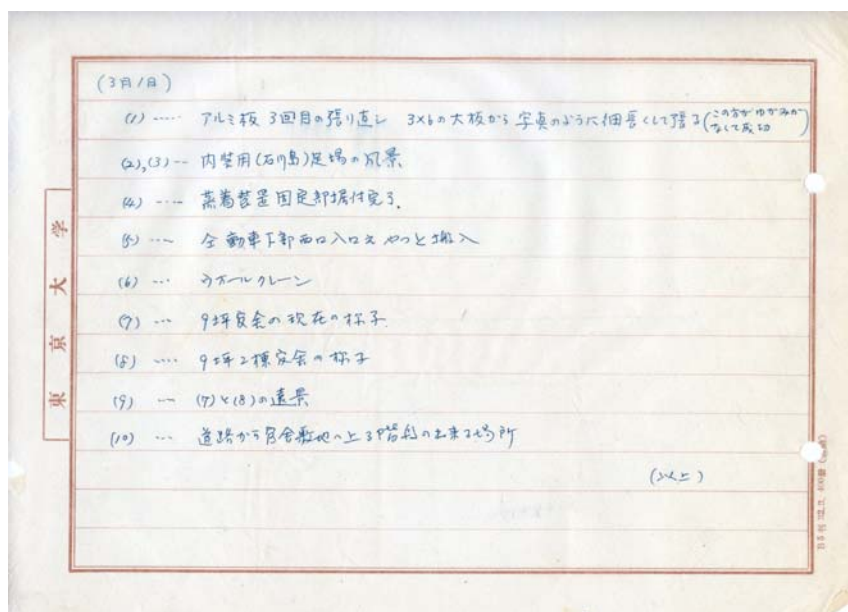 (3月1日)
(1) ····· アルミ板 3回目の張り直し 3×6の大板から 写真のように細長くして張る(この方がゆがみがなくて成功)
(2),(3) ··· 内装用(石川島)足場の風景
(4) ···· 蒸着装置固定部据付完了.
(5) ···· 仝 動車下部西口入口え やっと搬入
(6) ··· クレーン
(7) ··· 9坪官舎の現在の様子.
(8) ···· 9坪2棟官舎の様子
(9) ··· (7)と(8)の遠景
(10) ··· 道路から官舎敷地へ上る階段の出来る場所
(以上)
東京大学